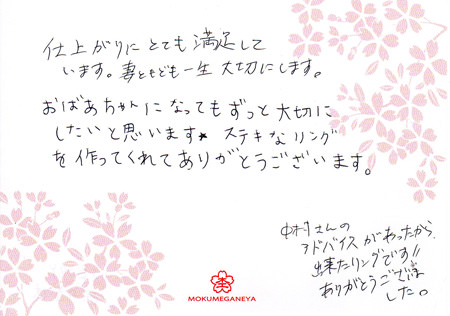 仕上がりにとても満足して
います。妻ともども一生大切にします。
おばあちゃんになってもずっと大切に
したいと思います★ ステキなリング
を作ってくれてありがとうございます。
中村さんの
アドバイスがあったから
出来たリングです!!
ありがとうござい
ました。
MOKUMEGANEYA